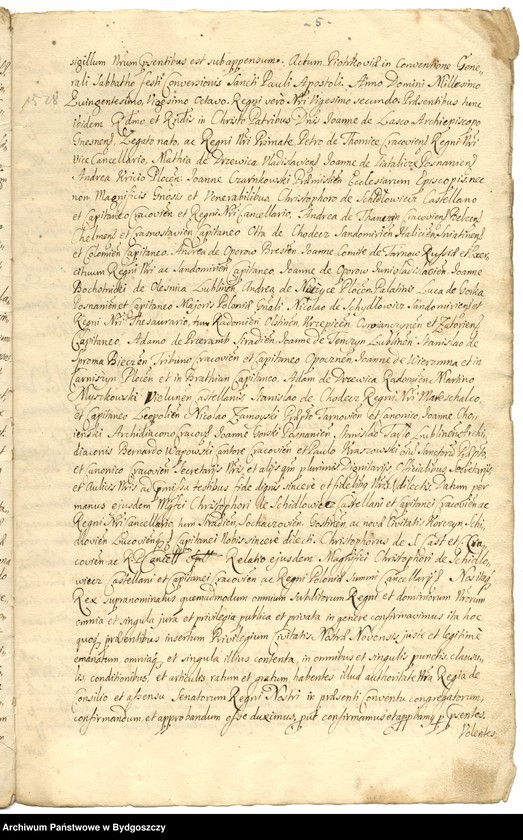 - 5 -
sigillum Nrum pñtibus est subappensum. Actum Piotrkoviæ in Conventione Gene-
rali Sabbatho festi Conversionis Sancti Pauli Apostoli. Anno Domini Millesimo
Quingentesimo, Vigesimo Octavo. Regni vero Nri Vigesimo secundo. Præsentibus tunc
ibidem Rdmo et Rndis in Christo Patribus Dñis Joanne de Lasco Archiepiscopo
Gnesneñ Legato nato, ac Regni Nri Primate Petro de Thomice Cracovieñ Regni Nri
Vice Cancellario, Mathia de Drzewica Vladislavieñ Joanne de Latalizæ Posnanieñ
Andrea Kricio Plceñ. Joanne Czarnkowski Præmislieñ Ecclesiarum Episcopis, nec
non Magnificis Gnosis et Venerabilibus Christophoro de Schidlowiecz Castellano
et Capitaneo Cracovien et Regni Nri Cancellario, Andrea de Thanczyn Cracovieñ Belzeñ
Chelmeñ et Crasnostavien Capitaneo Otta de Chodecz Sandomirien Halicieñ Sniatineñ
et Colomieñ Capitaneo. Andrea de Oporow Brestien, Joanne Comite de Tarnow Russiæ et Exer-
cituum Regni Nri ac Sandomirien Capitaneo. Joanne de Oporow Juniwladislavien, Joanne
Bochotnicki de Olesnica Lublineñ, Andrea de Ploceñ Palatinis Luca de Gorka
Posnanieñ et Capitaneo Majoris Poloniæ Gñali. Nicolao de Schydlowiecz Sandomirieñ et
Regni Nri Thesaurario, tum Radomien Olstineñ Krzepiceñ et Zatorieñ
Capitaneo, Adamo de Siradieñ Joanne de Tenczyn Lublineñ Stanislao de
Sproma Biecen Tribuno Cracovien et Capitaneo Opocznen Joanne de Wierzmna et in
Ploceñ et in Brathian Capitaneo. Adam de Drzewica Radomieñ Martino
Myszkowski Vieluneñ Castellanis Stanislao de Chodecz Regni Nri Mareschalco,
et Capitaneo Leopolien Nicolao Zamoyski Tarnovien et Canonico, Joanne Cho-
ienski Archidiacono Cracoveñ Joanne Gorski Posnanieñ, Stanislao Tarlo Lublineñ Archi-
diaconis Bernardo Wapowski Cantore Cracovien et Paulo
et Canonico Cracovien Secretarijs Nris, et alijs qm plurimis Dignitarijs, Officialibus Secretarijs
et Aulicis Nris ad pmissa testibus fide dignis sincere et fidelibus Nobis dilectis. Datum per
manus ejusdem Mgfici Christophori de Schidlowiecz Castellani et Capitanei Cracovien ac
Regni Nri Cancellarij tum Siradien, Sochaczovien, Gostinen, ac novæ Civitatis Korczyn, Schi-
dlovien Lucovieng Capitanei Nobis sincere dilecti. Christophorus de S. Cast et Can-
covien ac R: P: Cancell Sspt Relatio ejusdem Magnifici Christophori de Schidlo-
wiecz Castellani et Capitanei Cracovien ac Regni Poloniæ Summi Cancellarij Nos itaq
Rex supranominatus quemadmodum omnium Subditorum Regni et dominiorum Nrorum
omnia et singula jura et privilegia publica et privata in genere confirmavimus ita hoc
quoq præsentibus insertum Privilegium Civitatis Nostræ Novensis juste et legitime
emanatum, omniaq et singula illius contenta, in omnibus et singulis punctis, clausu-
lis conditionibus, et articulis ratum et gratum habentes illud authoritate Nra Regia de
Consilio et assensu Senatorum Regni Nostri in præsenti Conventu congregatorum,
confirmandum et approbandum esse duximus, put confirmamus et apphamq p pñsentes.
Volentes
Archiwum Państwowe w Bydgoszczy